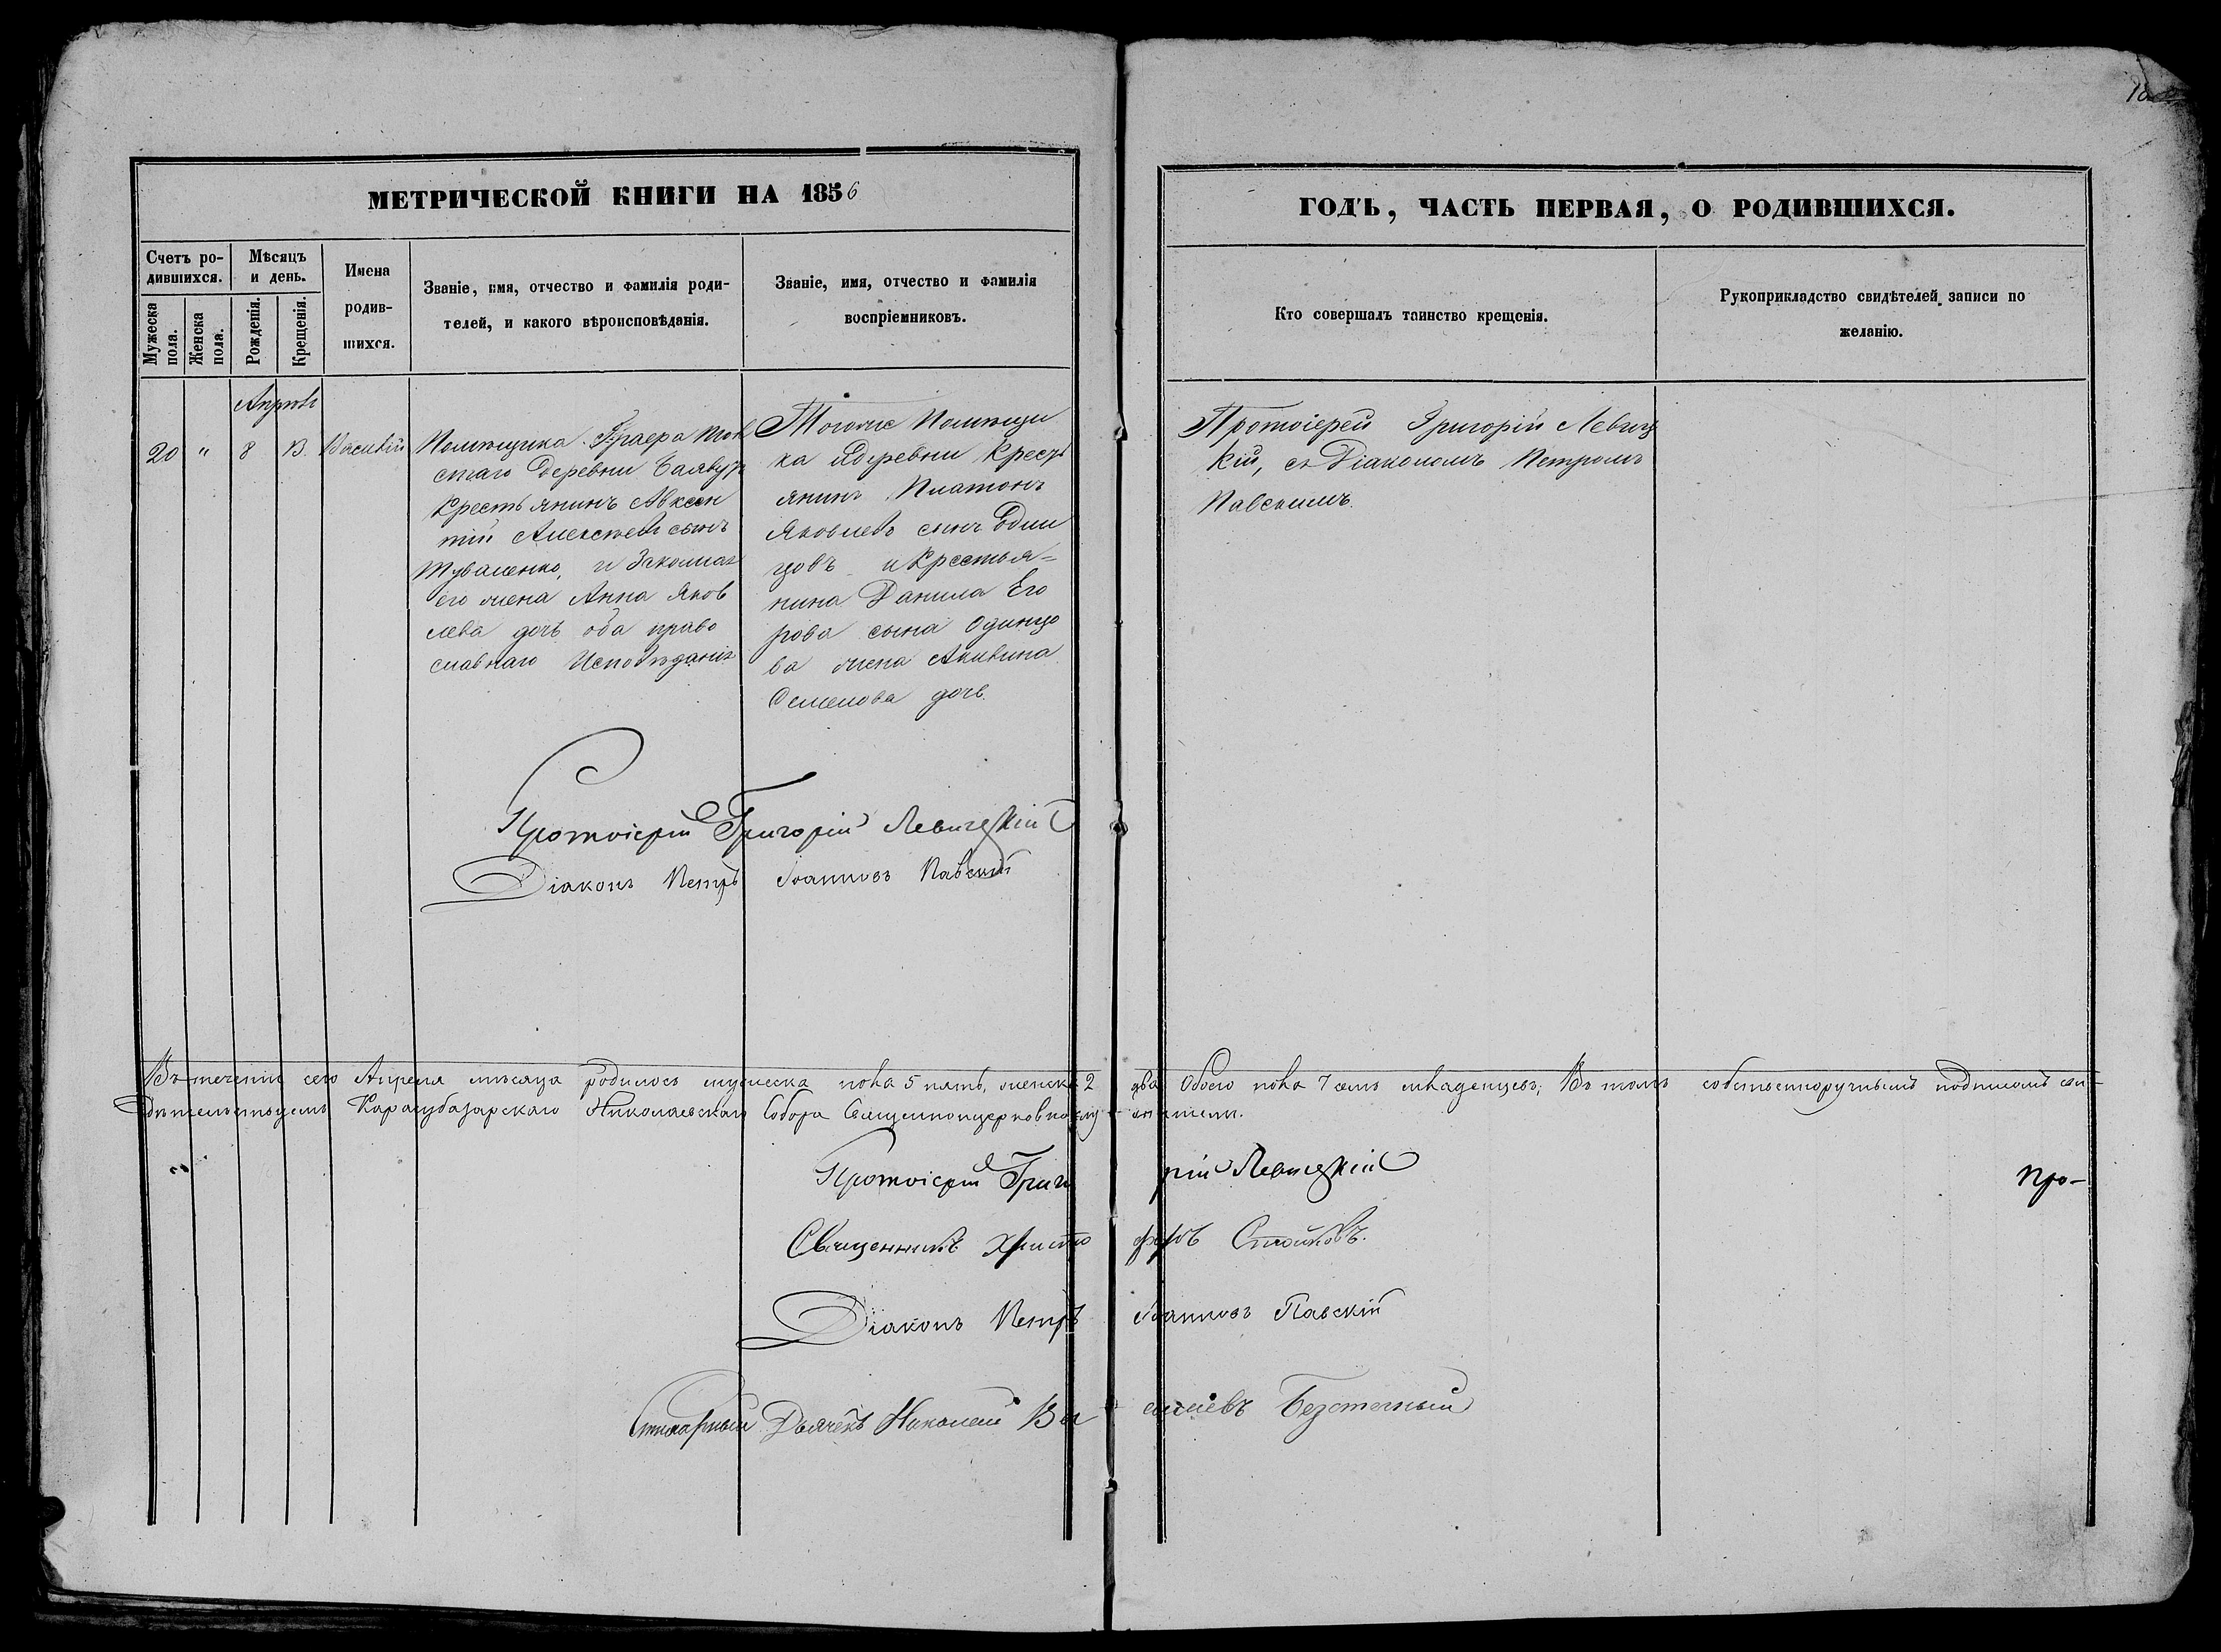 МЕТРИЧЕСКОЙ КНИГИ НА 1856
ГОДЪ, ЧАСТЬ ПЕРВАЯ, О РОДИВШИХСЯ.
Счетъ ро-
дившихся.
Мужеска пола.
Женска пола.
Мѣсяцъ
и день.
Рожденія.
Крещенія.
Имена
родив-
шихся.
Званіе, имя, отчество и фамилія роди-
телей, и какого вѣроисповѣданія.
Званіе, имя, отчество и фамилія
воспріемниковъ.
Кто совершалъ таинство крещенія.
Рукоприкладство свидѣтелей записи по
желанію.
Апрѣль
20 " 8 13. Василій
Помѣщика
стаго Деревни
Крестьянинъ Авксен
тій Алексѣевъ сынъ
Туваленко, и Законная
его жена Анна Яков
лева дочь оба право
славнаго Исповѣданія
Тогоже Помѣщи
ка идеревни Кресть
янинъ Платонъ
Яковлевъ сынъ Один
цовъ и Крестья=
нина Данила Его
рова сына Одинцо
ва жена Акилина
Семенова дочь.
Протоіерей Григорій Левиц
кій, съ Діакономъ Петромъ
Павскимъ.
Протоіерей Григорій Левицкій
Діаконъ Петръ Іоанновъ Павскій
Въ теченіи сего Апреля мѣсяца родилось мужеска пола 5 пять, женска 2 два Обоего пола 7 семь младенцевъ; Въ томъ собственноручнымъ подписомъ сви-
дѣтельствуемъ Карасубазарскаго Николаевскаго Собора Священноцерковнослужители.
Протоіерей Григорій Левицкій
Про-
Священникъ Христофоръ Стойковъ.
Діаконъ Петръ Іоанновъ Павскій
Стихарный Дьячекъ Николай Васильевъ